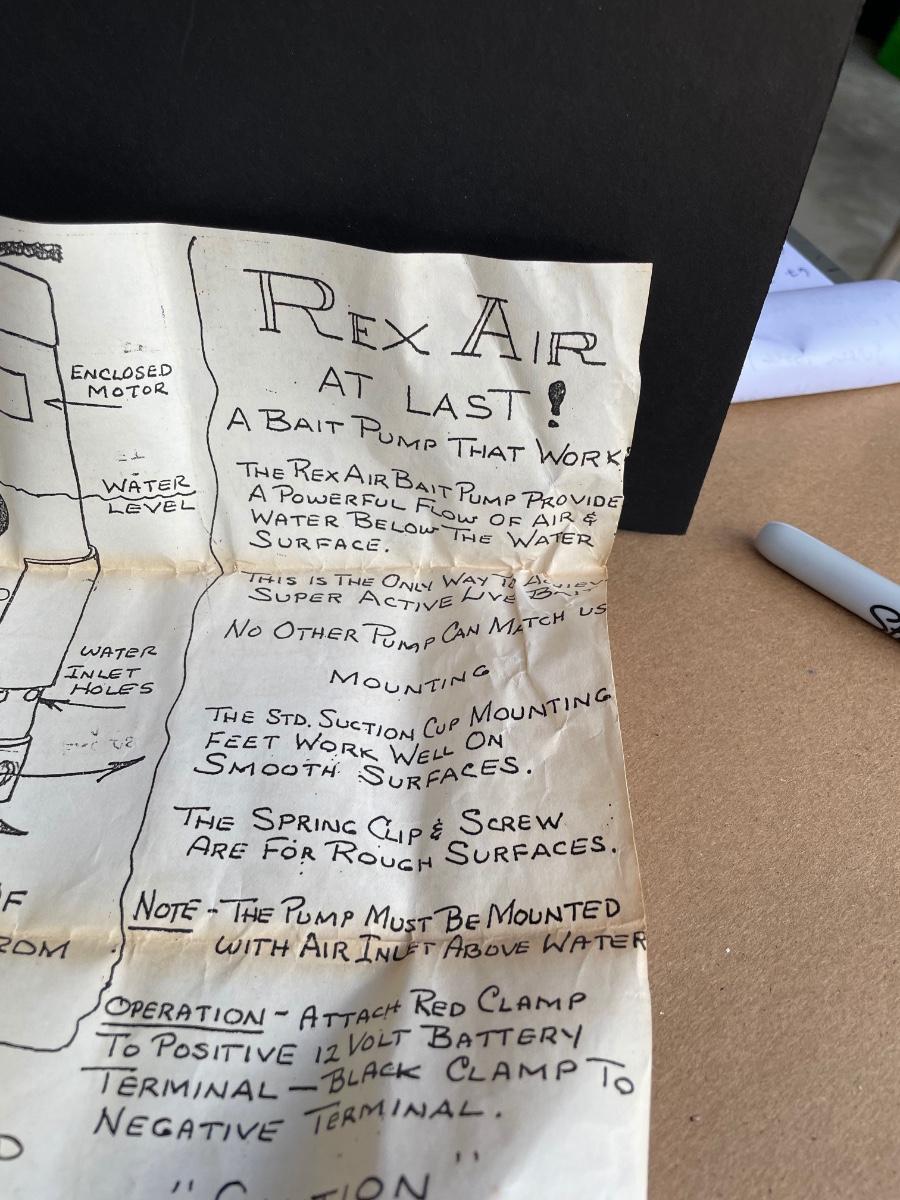 REX AIR
AT LAST!
A BAIT PUMP THAT WORKS
THE REX AIR BAIT PUMP PROVIDE
A POWERFUL FLOW OF AIR &
WATER BELOW THE WATER
SURFACE.
THIS IS THE ONLY WAY TO
SUPER ACTIVE LIVE BAIT
NO OTHER PUMP CAN MATCH US
MOUNTING
THE STD. SUCTION CUP MOUNTING
FEET WORK WELL ON
SMOOTH SURFACES.
THE SPRING CLIP & SCREW
ARE FOR ROUGH SURFACES.
NOTE - THE PUMP MUST BE MOUNTED
WITH AIR INLET ABOVE WATER
OPERATION - ATTACH RED CLAMP
TO POSITIVE 12 VOLT BATTERY
TERMINAL - BLACK CLAMP TO
NEGATIVE TERMINAL.
ENCLOSED
MOTOR
WATER
LEVEL
WATER
INLET
HOLES